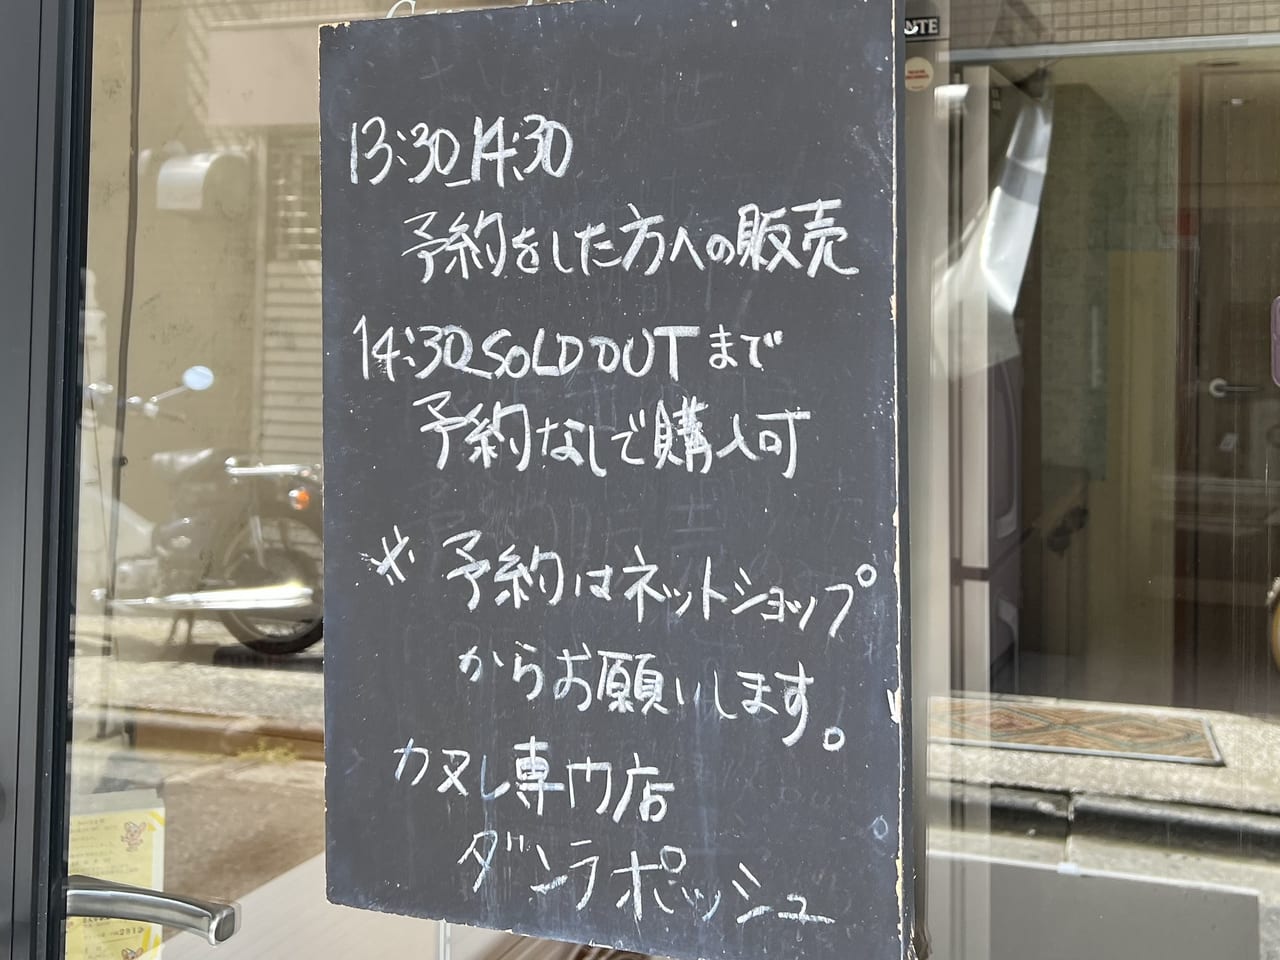 13:30_14:30
予約をした方への販売
14:30 SOLD OUTまで
予約なしで購入可
※ 予約はネットショップ
からお願いします。
カヌレ専門店
ダンラポッシュ